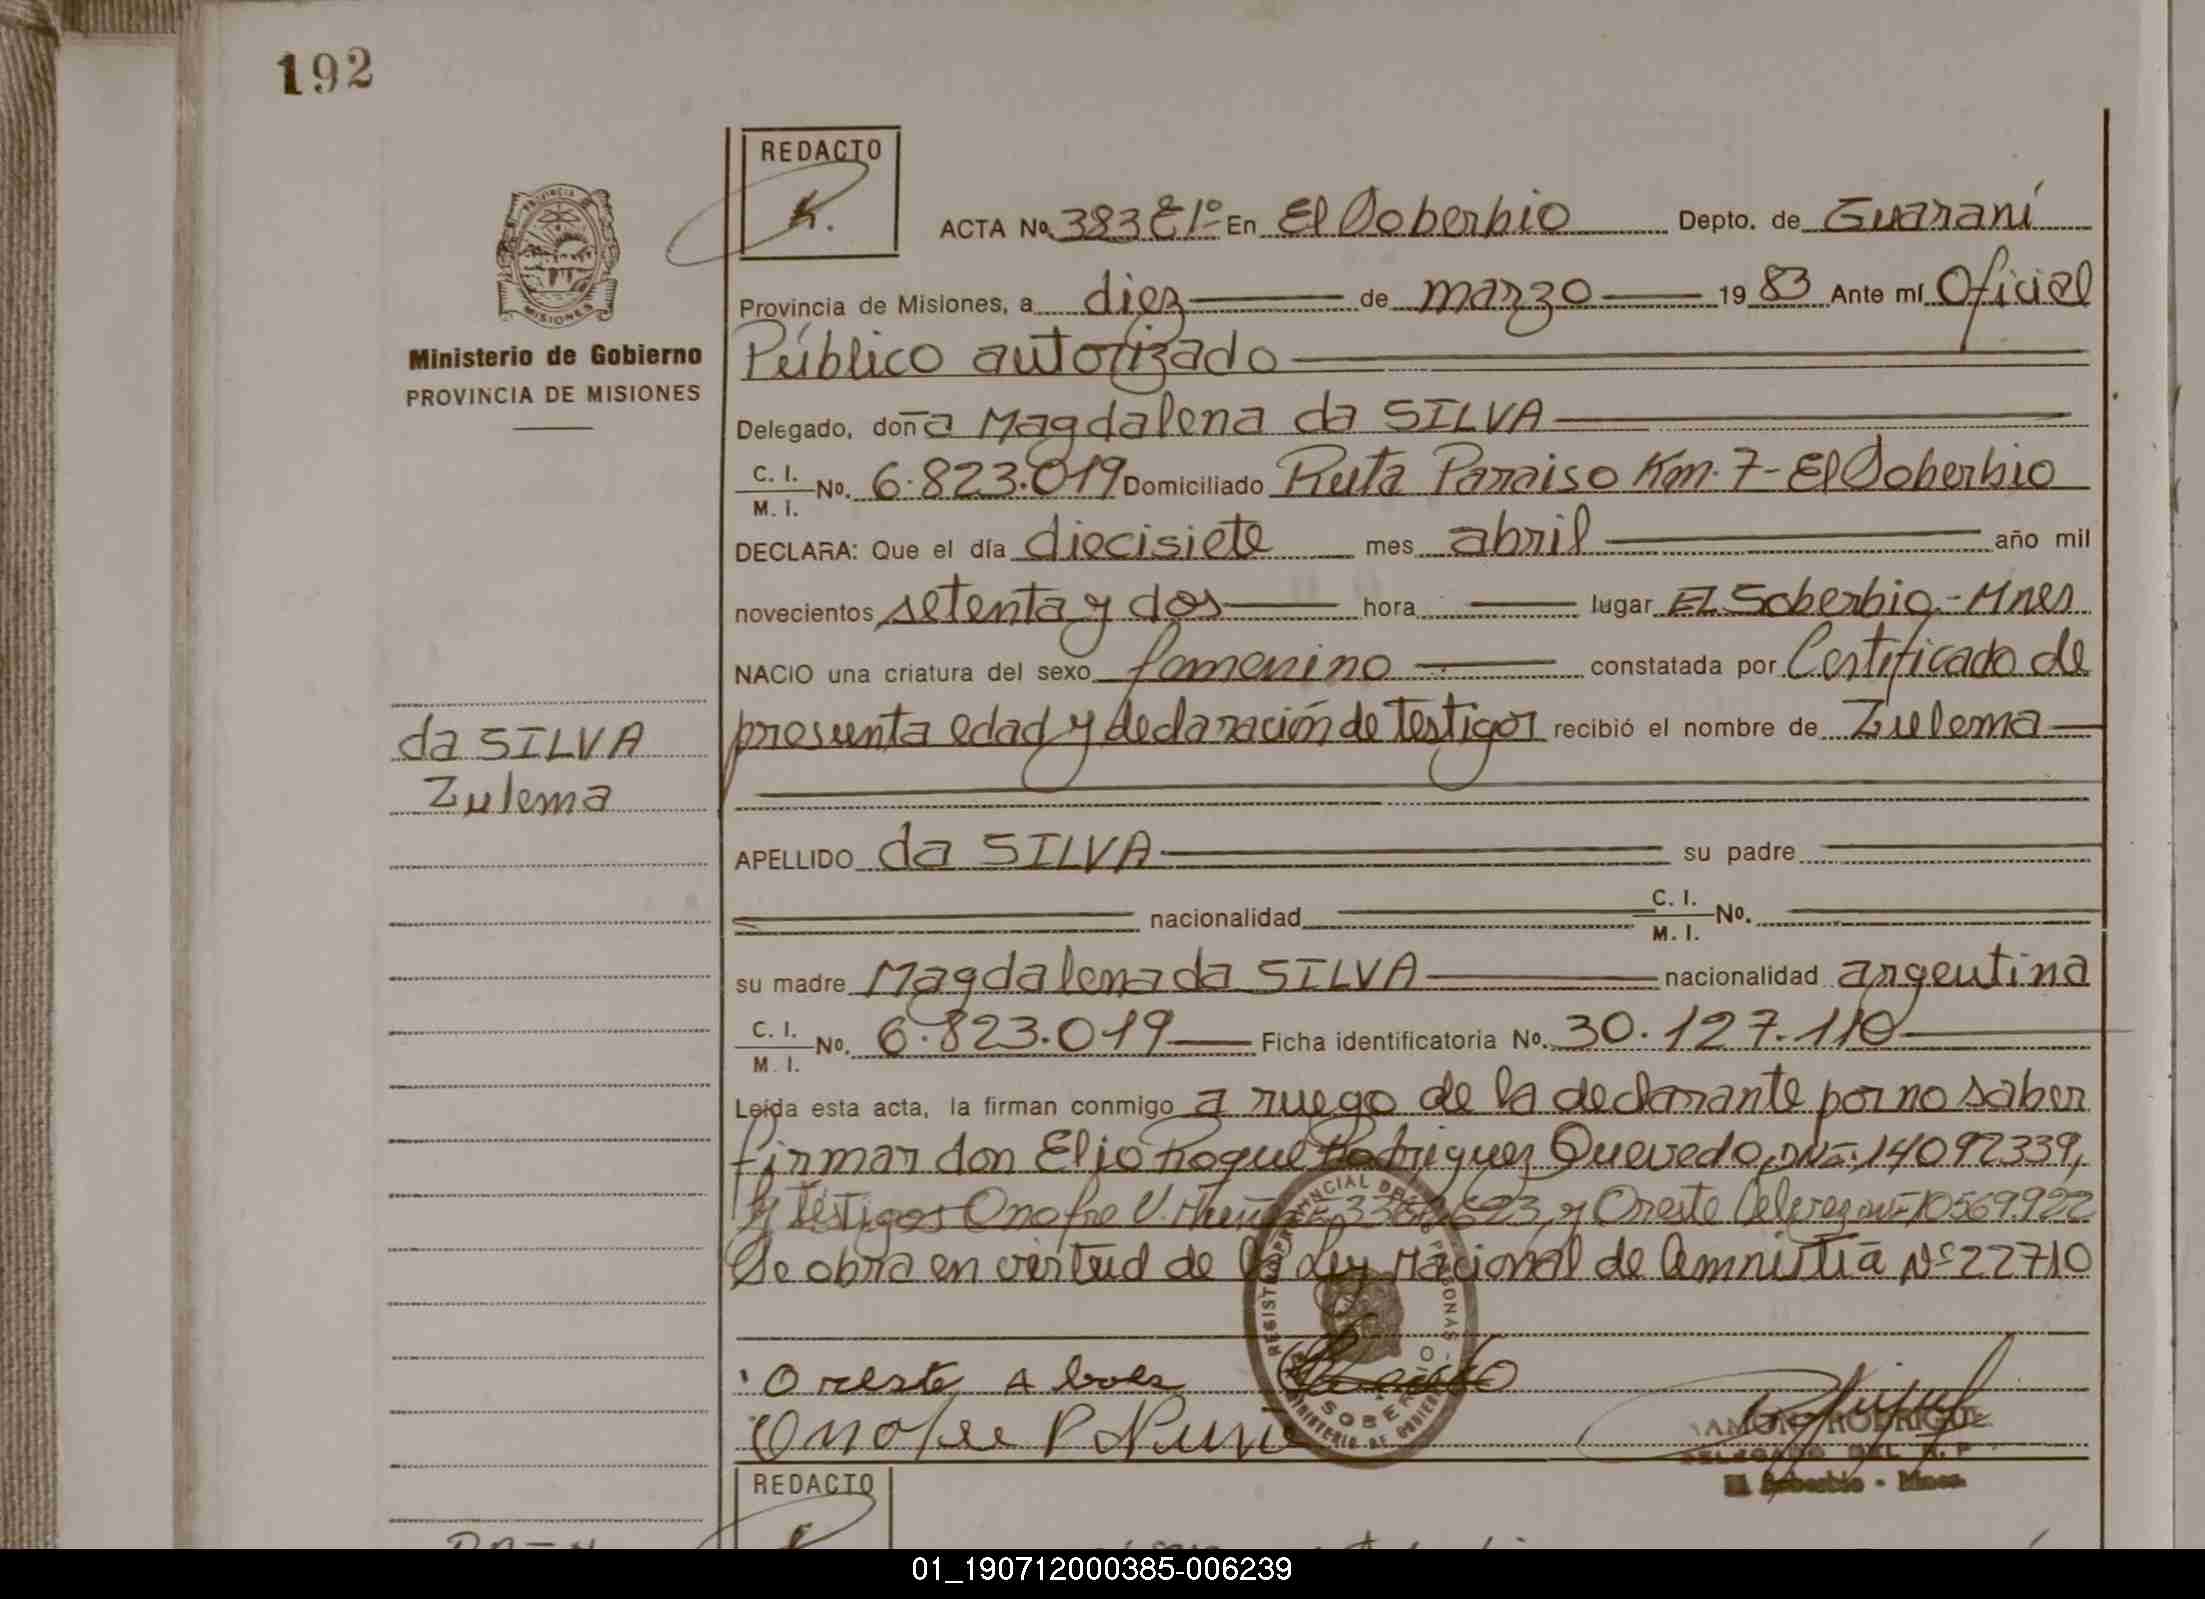 192
REDACTO
K.
ACTA No. 383 E1º En El Soberbio Depto. de Guaraní
PROVINCIA
MISIONES
Provincia de Misiones, a diez de marzo 1983 Ante mí Oficial
Ministerio de Gobierno
PROVINCIA DE MISIONES
Público autorizado
Delegado, doña Magdalena da SILVA
C. I.
M. I. No. 6.823.019 Domiciliado Ruta Paraiso Km. 7 - El Soberbio
DECLARA: Que el día diecisiete mes abril año mil
novecientos setenta y dos hora lugar EL Soberbio - Mnes
NACIO una criatura del sexo femenino constatada por Certificado de
presunta edad y declaración de testigos recibió el nombre de Zulema
da SILVA
Zulema
APELLIDO da SILVA su padre
nacionalidad C. I.
M. I. No.
su madre Magdalena da SILVA nacionalidad argentina
C. I.
M. I. No. 6.823.019 Ficha identificatoria No. 30.127.110
Leída esta acta, la firman conmigo a ruego de la declarante por no saber
firmar don Elio Roque Rodriguez Quevedo, 14092339,
y testigos Onofre V. y Oreste 10569922
Se obra en virtud de la Ley Nacional de Amnistía Nº 22710
Oreste
Onofre
REGISTRO PROVINCIAL DE LAS PERSONAS
SOBERBIO
MINISTERIO DE GOBIERNO
RAMON RODRIGUEZ
DELEGADO DEL R. P.
El Soberbio - Mnes.
REDACTO
01_190712000385-006239